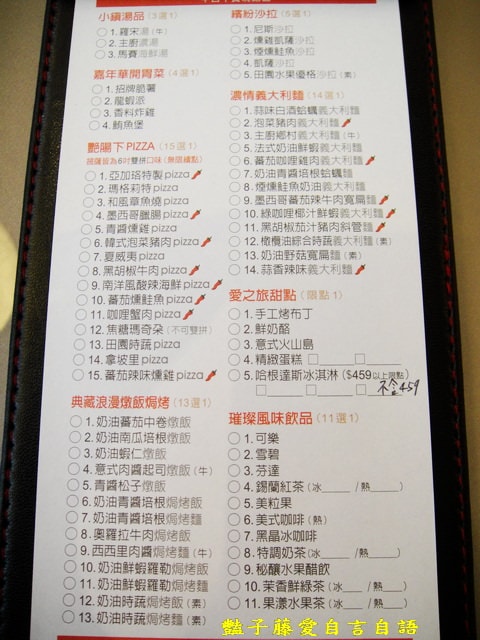 小鎮湯品 (3選1)
1. 羅宋湯 (牛)
2. 主廚濃湯
3. 馬賽海鮮湯
嘉年華開胃菜 (4選1)
1. 招牌脆薯
2. 龍蝦派
3. 香料炸雞
4. 鮪魚堡
艷陽下PIZZA (15選1)
披薩皆為6吋雙拼口味 (無限續點)
1. 亞加珞特製pizza
2. 瑪格莉特pizza
3. 和風章魚燒pizza
4. 墨西哥臘腸pizza
5. 青醬燻雞pizza
6. 韓式泡菜豬肉pizza
7. 夏威夷pizza
8. 黑胡椒牛肉pizza
9. 南洋風酸辣海鮮pizza
10. 蕃茄燻鮭魚pizza
11. 咖哩蟹肉pizza
12. 焦糖瑪奇朵 (不可雙拼)
13. 田園時蔬pizza
14. 拿坡里pizza
15. 蕃茄辣味燻雞pizza
典藏浪漫燉飯焗烤 (13選1)
1. 奶油蕃茄中卷燉飯
2. 奶油南瓜培根燉飯
3. 奶油蝦仁燉飯
4. 意式肉醬起司燉飯 (牛)
5. 青醬松子燉飯
6. 奶油青醬培根焗烤飯
7. 奶油青醬培根焗烤麵
8. 奧羅拉牛肉焗烤飯
9. 西西里肉醬焗烤麵 (牛)
10. 奶油鮮蝦羅勒焗烤飯
11. 奶油鮮蝦羅勒焗烤麵
12. 奶油時蔬焗烤飯 (素)
13. 奶油時蔬焗烤麵 (素)
繽紛沙拉 (5選1)
1. 尼斯沙拉
2. 燻雞凱薩沙拉
3. 煙燻鮭魚沙拉
4. 凱薩沙拉
5. 田園水果優格沙拉 (素)
濃情義大利麵 (14選1)
1. 蒜味白酒蛤蠣義大利麵
2. 泡菜豬肉義大利麵
3. 主廚鄉村義大利麵 (牛)
5. 法式奶油鮮蝦義大利麵
6. 蕃茄咖哩雞肉義大利麵
7. 奶油青醬培根蛤蠣麵
8. 煙燻鮭魚奶油義大利麵
9. 墨西哥蕃茄辣牛肉寬扁麵
10. 綠咖哩椰汁鮮蝦義大利麵
11. 黑胡椒茄汁豬肉斜管麵
12. 橄欖油綜合時蔬義大利麵 (素)
13. 奶油野菇寬扁麵 (素)
14. 蒜香辣味義大利麵
愛之旅甜點 (限點1)
1. 手工烤布丁
2. 鮮奶酪
3. 意式火山島
4. 精緻蛋糕
5. 哈根達斯冰淇淋 ($459以上限點)
不含459
璀璨風味飲品 (11選1)
1. 可樂
2. 雪碧
3. 芬達
4. 錫蘭紅茶 (冰____ / 熱____)
5. 美粒果
6. 美式咖啡 (熱)
7. 黑晶冰咖啡
8. 特調奶茶 (冰____ / 熱____)
9. 秘釀水果醋飲
10. 茉香鮮綠茶 (冰____ / 熱____)
11. 果漾水果茶 (冰____ / 熱____)
豔子藤愛自言自語